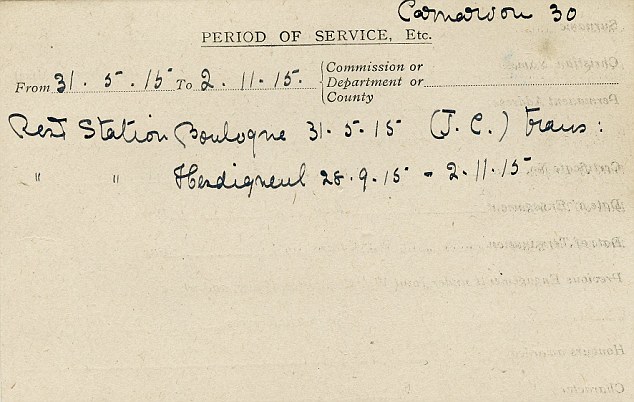 Carnarvon 30
PERIOD OF SERVICE, Etc.
From 31. 5. 15 To 2. 11. 15. Commission or Department or County
Rest Station Boulogne 31.5.15 (J. C.) trans:
" " Hesdigneul 28.9.15 - 2.11.15